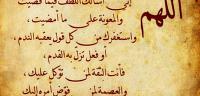 اللهم
إني أسألك اللطف فيما قضيت
والمعونة على ما أمضيت ،
واستغفرك من كل قول يعقبه الندم ،
أو فعل تزل به القدم ،
فأنت الثقة لمن توكل عليك ،
والعصمة لمن فوض أمره إليك